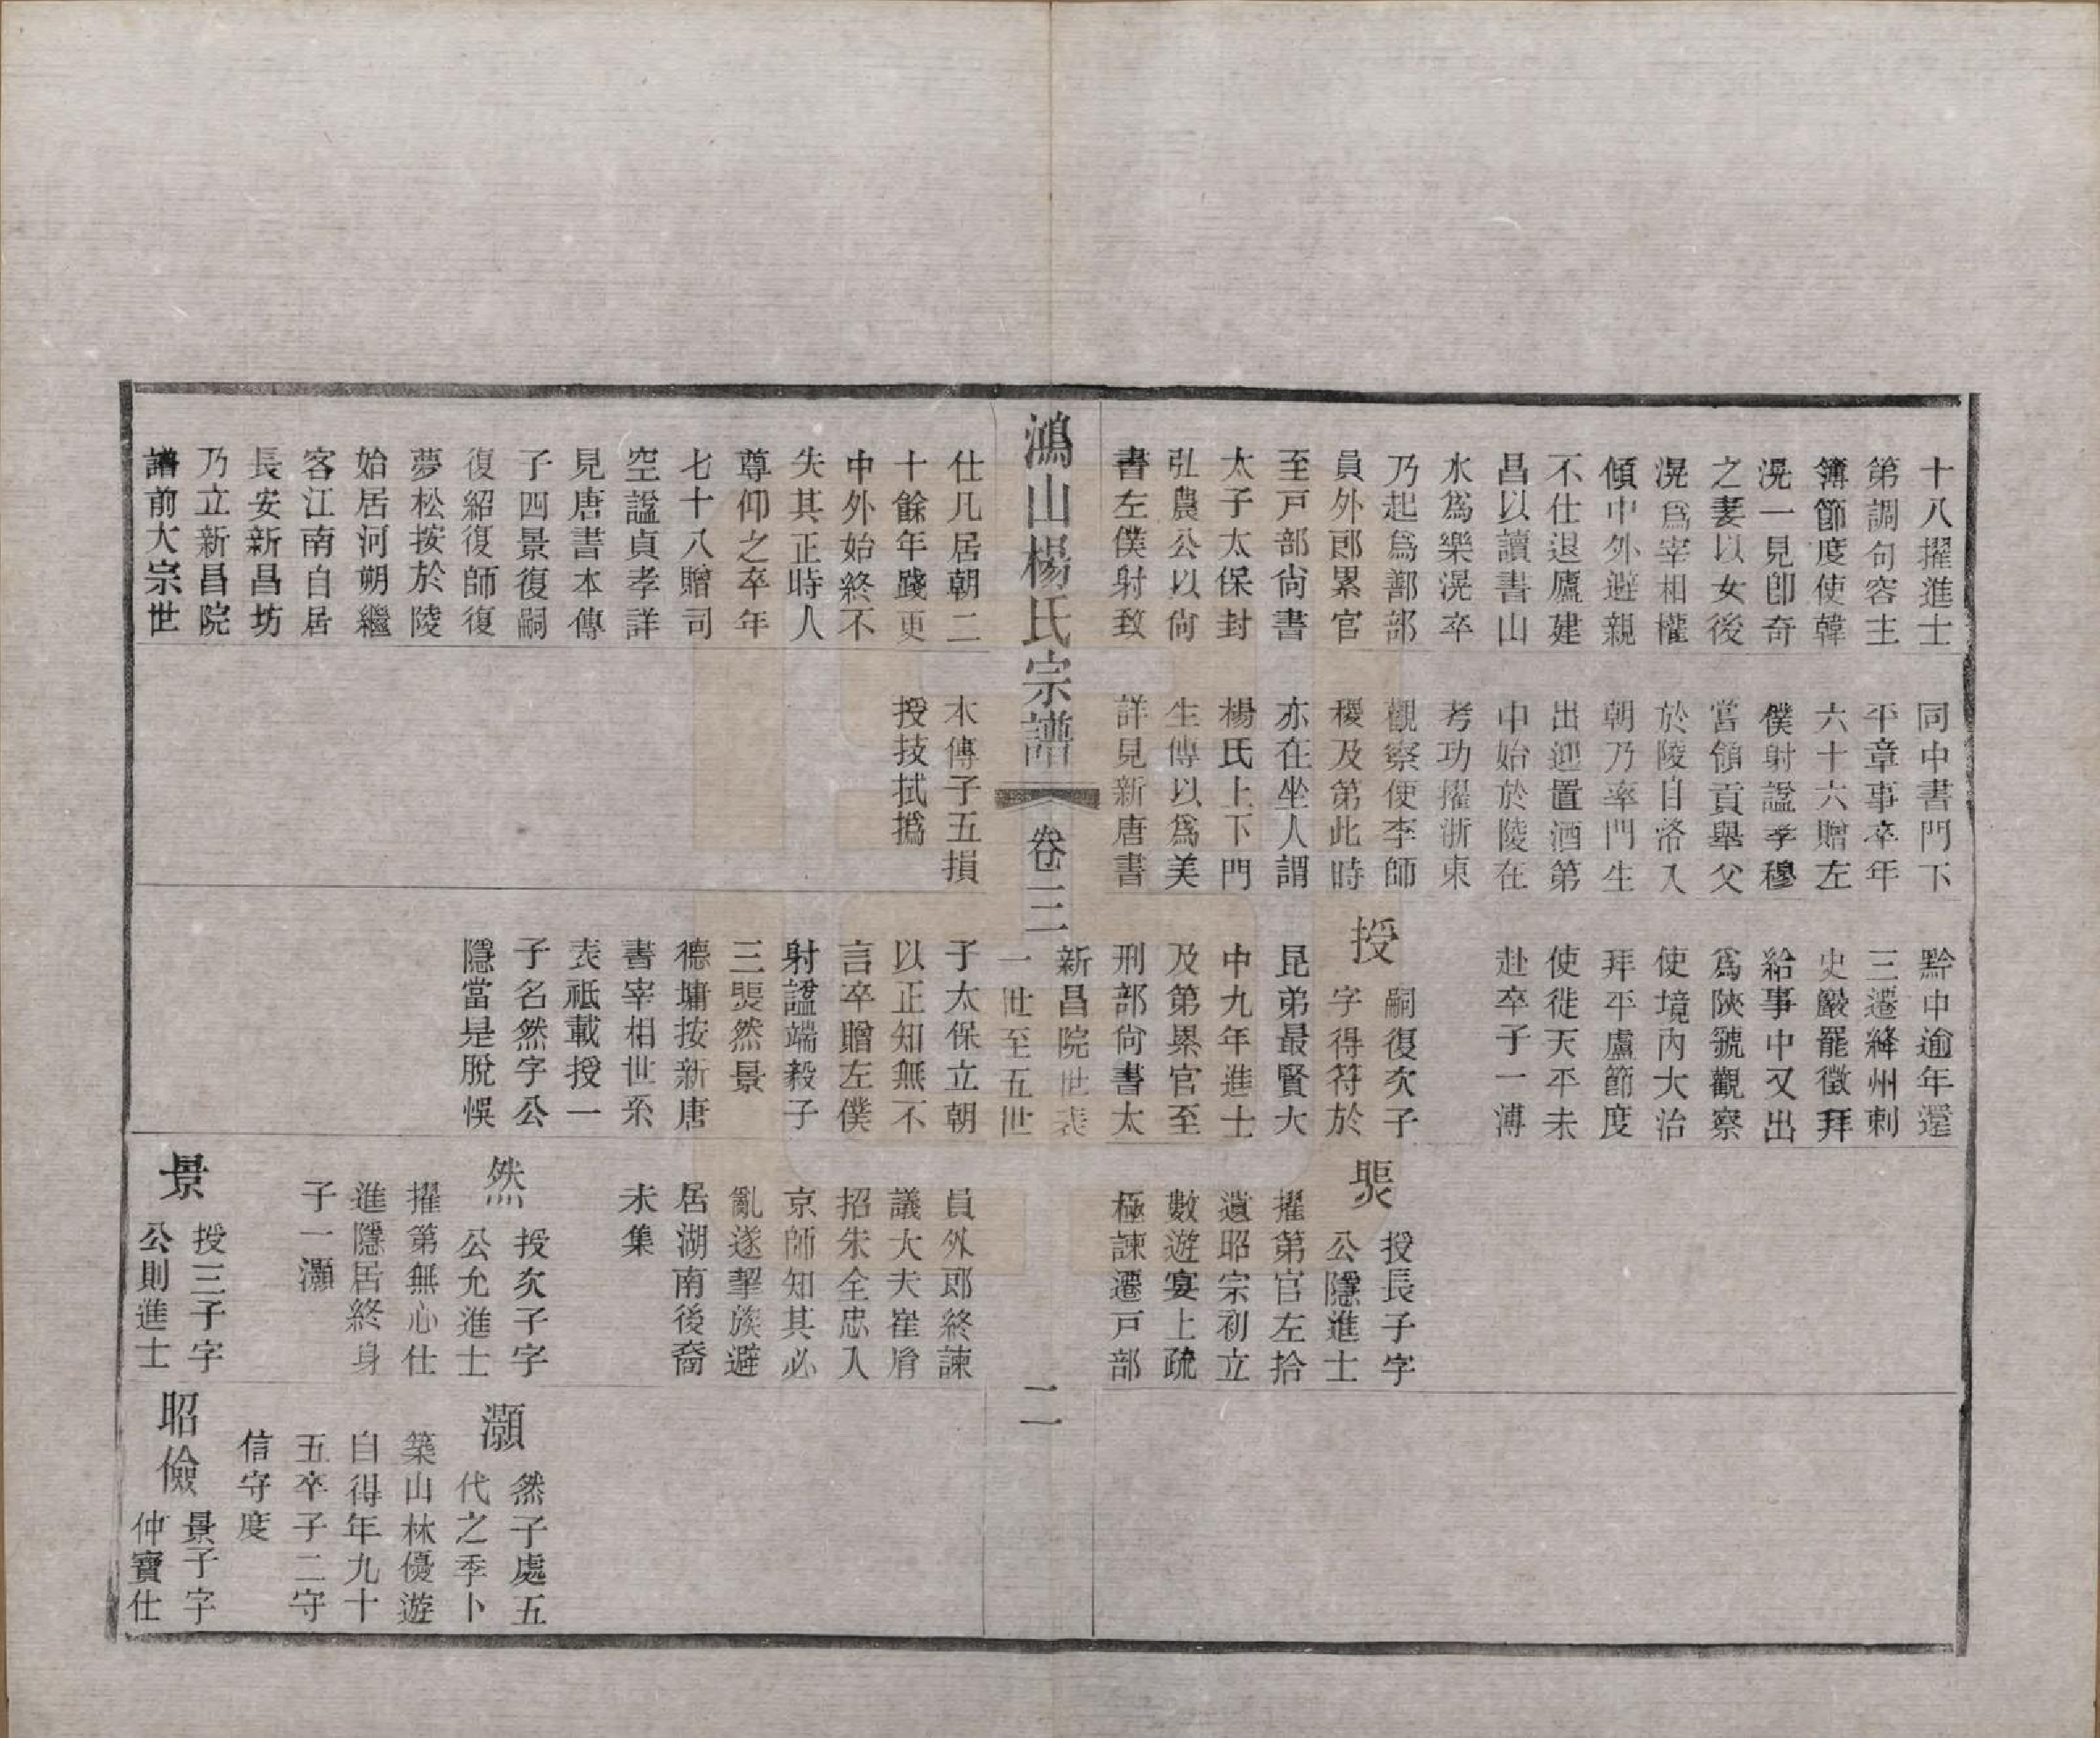 十八擢進士
第調句容主
簿節度使韓
滉一見卽奇
之妻以女後
滉爲宰相權
傾中外避親
不仕退廬建
昌以讀書山
水爲樂滉卒
乃起爲鄯部
員外郎累官
至戸部尙書
太子太保封
弘農公以尙
書左僕射致
同中書門下
平章事卒年
六十六贈左
僕射諡孝穆
嘗領貢舉父
於陵自洛入
朝乃率門生
出迎置酒第
中始於陵在
考功擢浙東
觀察使李師
稷及第此時
亦在坐人謂
楊氏上下門
生傳以爲美
詳見新唐書
黔中逾年還
三遷絳州刺
史嚴罷徵拜
給事中又出
爲陝虢觀察
使境內大治
拜平盧節度
使徙天平未
赴卒子一溥
授
嗣復次子
字得符於
昆弟最賢大
中九年進士
及第累官至
刑部尙書太
煚
授長子字
公隱進士
擢第官左拾
遺昭宗初立
數遊宴上疏
極諫遷戸部
鴻山楊氏宗譜
卷三
新昌院世表
一世至五世
二
仕凡居朝二
十餘年踐更
中外始終不
失其正時人
尊仰之卒年
七十八贈司
空諡貞孝詳
見唐書本傳
子四景復嗣
復紹復師復
夢松按於陵
始居河朔繼
客江南自居
長安新昌坊
乃立新昌院
譜前大宗世
本傳子五損
授技拭撝
子太保立朝
以正知無不
言卒贈左僕
射諡端毅子
三煚然景
德墉按新唐
書宰相世系
表祗載授一
子名然字公
隱當是脫悞
員外郎終諫
議大夫崔胷
招朱全忠入
京師知其必
亂遂挈族避
居湖南後裔
未集
然
授次子字
公允進士
擢第無心仕
進隱居終身
子一灝
景
授三子字
公則進士
灝
然子處五
代之季卜
築山林優遊
自得年九十
五卒子二守
信守度
昭儉
景子字
仲寶仕